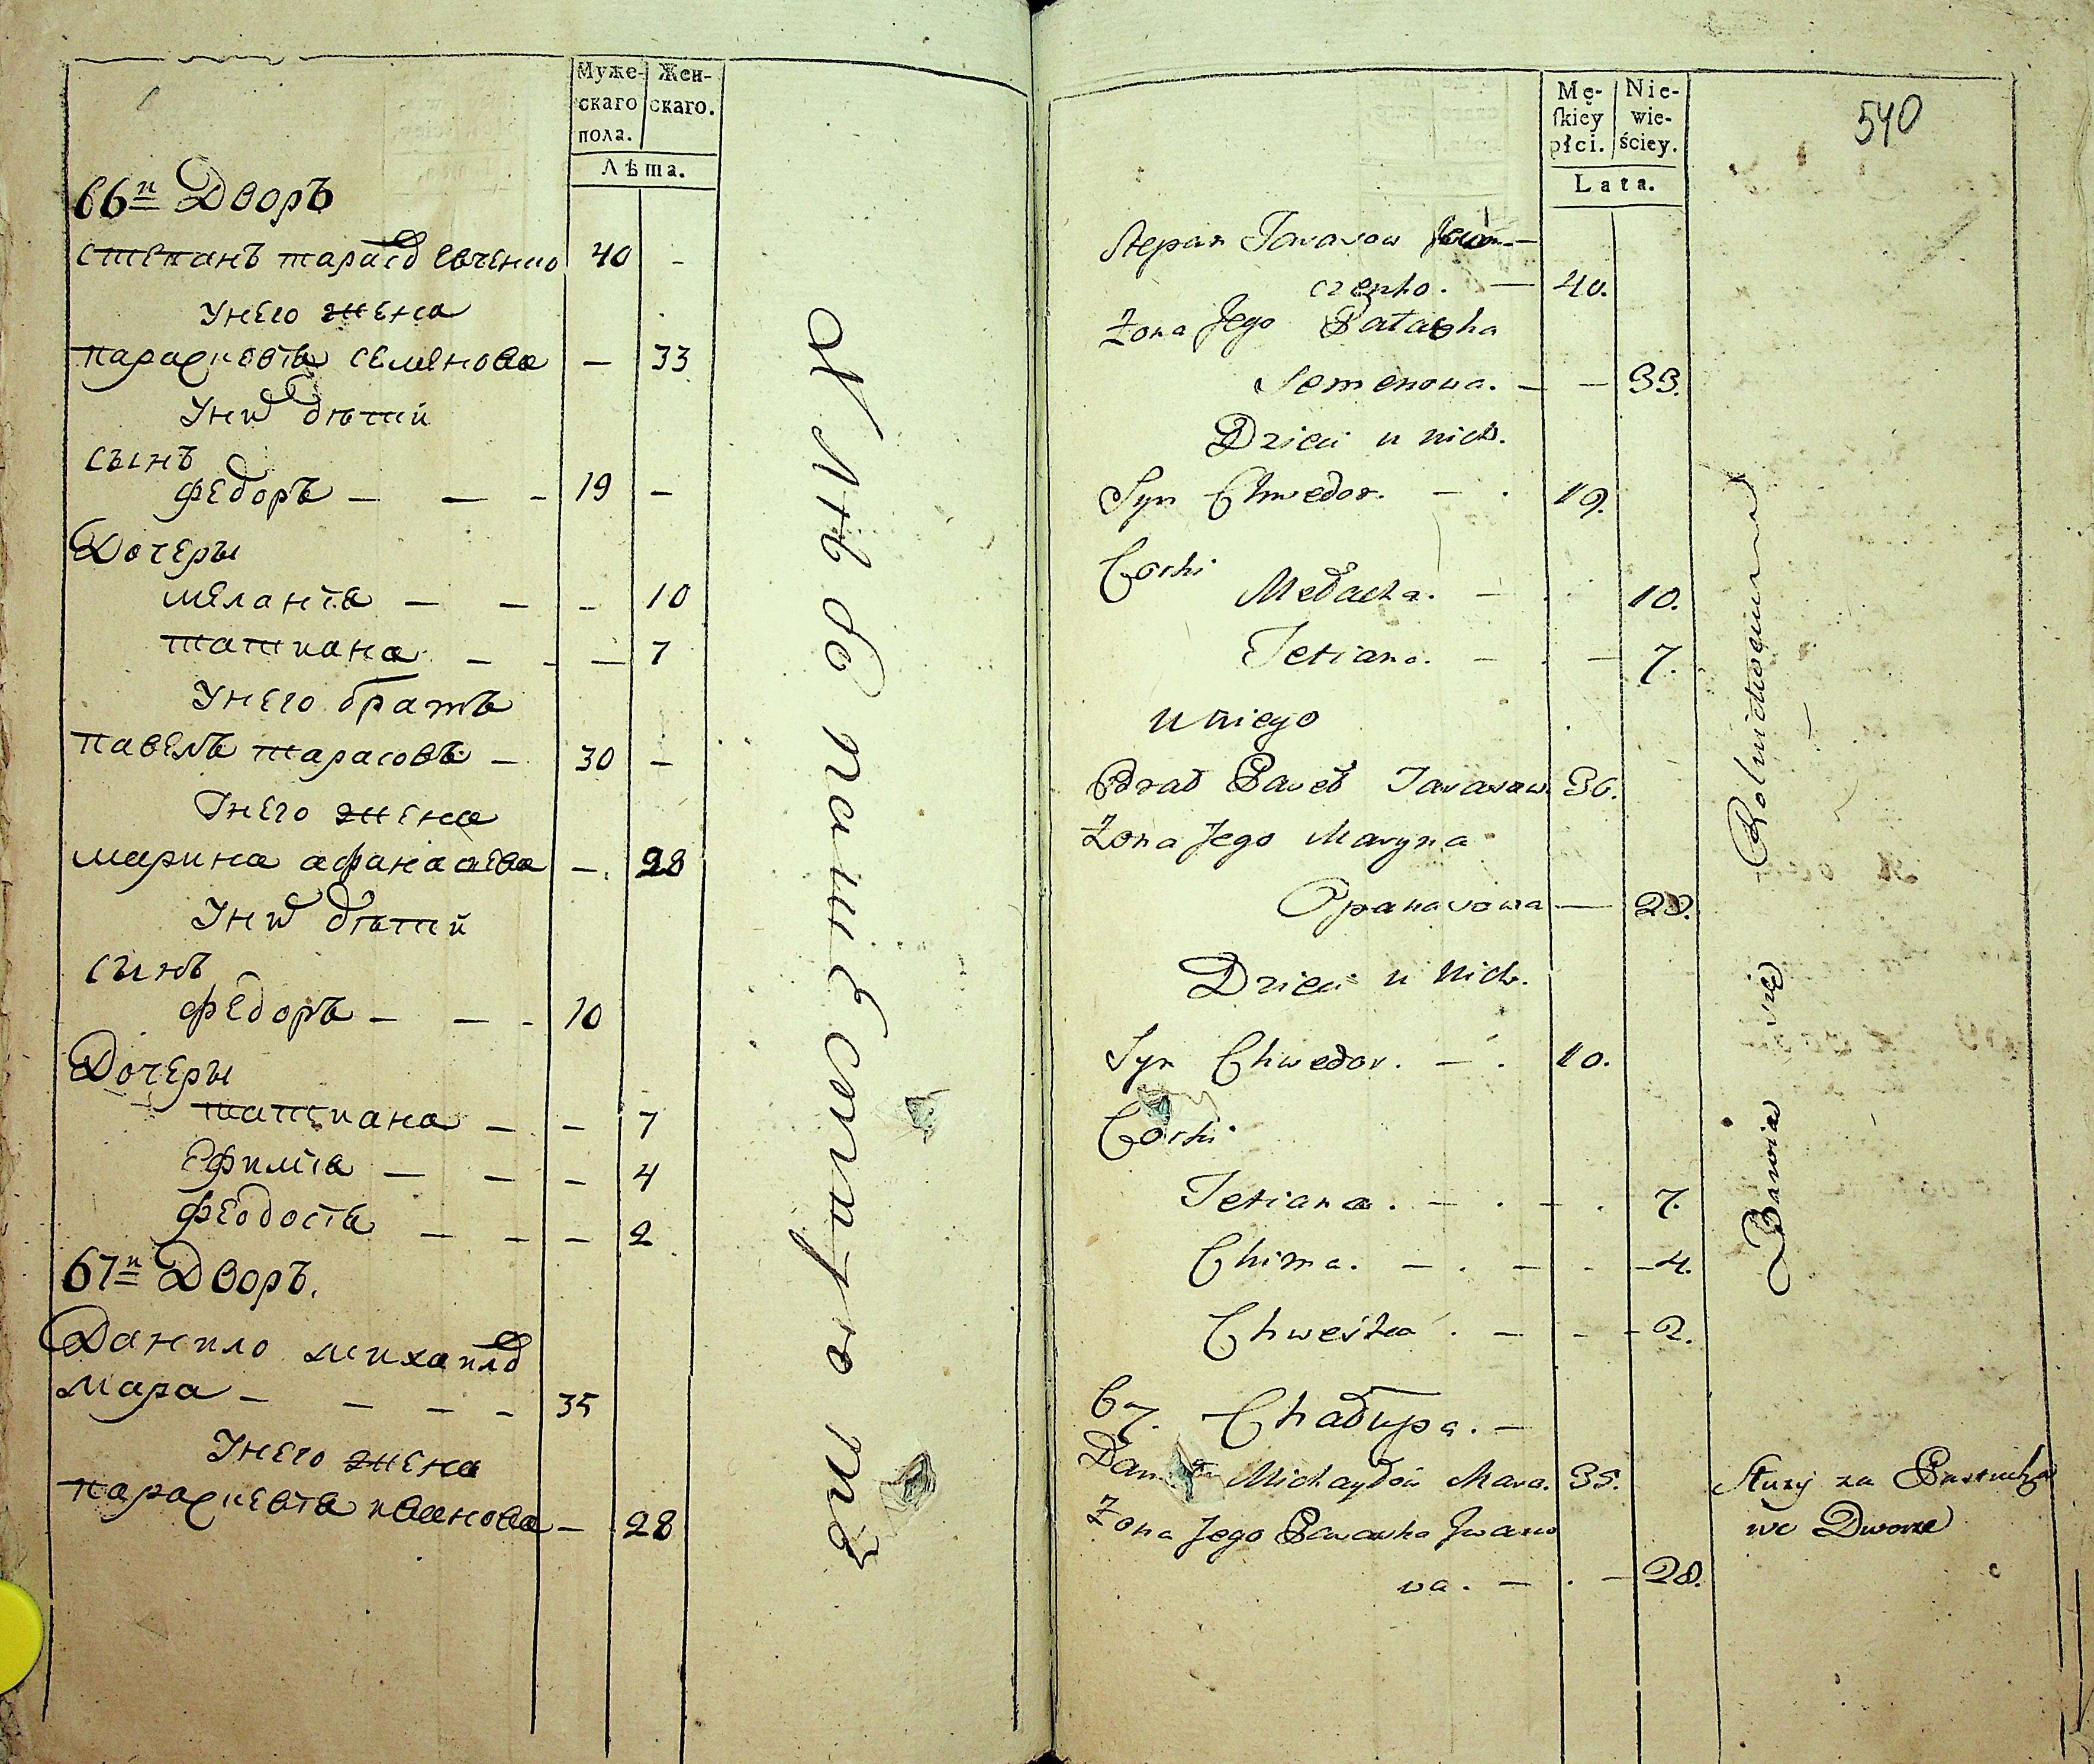 Муже-
скаго
пола.
Жен-
скаго.
Лѣта.
66й Дворъ
степанъ тарасов евченко 40 -
унего жена
параскевія семенова — 33
уних дѣтей
сынъ
федоръ — — - 19 —
Дочеры
меланія — — - 10
татиана — - — 7
унего братъ
павелъ тарасовъ — 30 —
Унего жена
марина афанасиева — 28
Уних дѣтей
сынъ
федоръ — — - 10
Дочеры
татиана — — 7
Ефимія — — - 4
феодосія — — — 2
67й Дворъ.
Данило михаилов
мара — — — - 35
Унего жена
параскевія иванова — 28
Хлѣбо пашествую
540
Mę-
skiey
płci.
Nie-
wie-
ściey.
Lata.
Stepan Tarasow
czenko. — 40.
Żona Jego
Semenowa. — — 33.
Dzieci u nich.
Syn Chwedor. — . 19.
Corki
Mełacha. — . 10.
Tetiana. — . — 7.
u niego
Brat Paweł Tarasow. 30.
Żona Jego Maryna
Opanasowa — 28.
Dzieci u nich.
Syn Chwedor. — . 10.
Corki
Tetiana. — . — . 7.
Chima. — . — - — 4.
Chweśka . — - — 2.
67. Chałupa. —
Michayłow Mara. 35.
Żona Jego Paraska Iwano
wa. — . — 28.
Bawia się Rolnictwem
Służy za Pastucha
we Dworze